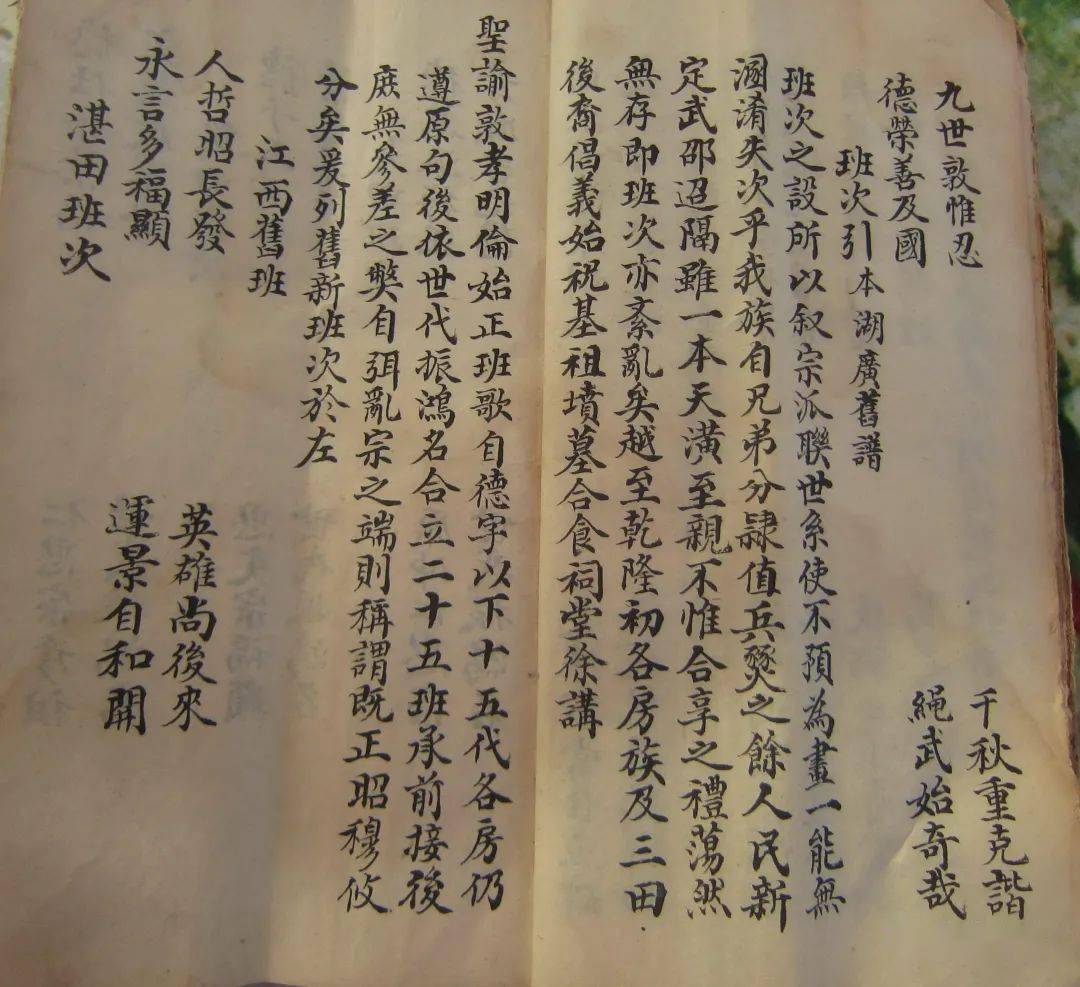 九世敦惟忍
千秋重克諧
德榮善及國
繩武始奇哉
班次引 本湖廣舊譜
班次之設所以叙宗派聯世系使不預為畫一能無
溷淆失次乎我族自兄弟分隸值兵燹之餘人民新
定武邵迢隔雖一本天潢至親不惟合享之禮蕩然
無存即班次亦紊亂矣越至乾隆初各房族及三田
後裔倡義始祝基祖墳墓合食祠堂徐講
聖諭敦孝明倫始正班歌自德字以下十五代各房仍
遵原句後依世代振鴻名合立二十五班承前接後
庶無參差之獘自弭亂宗之端則稱謂既正昭穆攸
分矣爰列舊新班次於左
江西舊班
人哲昭長發
英雄尚後來
永言多福顯
運景自和開
湛田班次